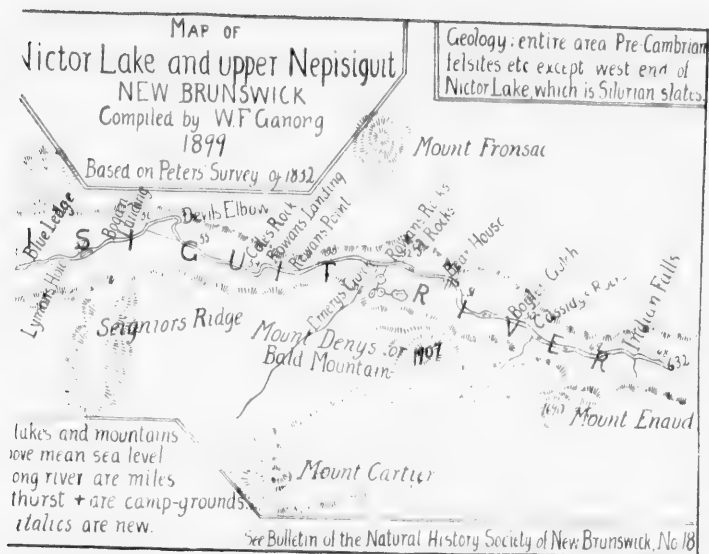 MAP OF
Nictor Lake and upper Nepisiguit
NEW BRUNSWICK
Compiled by W.F Ganong
1899
Based on Peters' Survey of 1832
Geology: entire area Pre-Cambrian
felsites etc except west end of
Nictor Lake, which is Silurian slates.
Mount Fronsac
Blue Ledge
Bogan
Devils Elbow
Coles Rock
Rowans Landing
Rowans Point
Rowans Rocks
Rocks
House
Gulch
Indian Falls
I S I G U I T R I V E R
Lymans
Seigniors Ridge
Emerys
Mount Denys or
Bald Mountain
1907
632
Mount Enaud
Mount Cartier
lakes and mountains
ove mean sea level
ong river are miles
thurst + are camp-grounds.
italics are new.
See Bulletin of the Natural History Society of New Brunswick, No 18